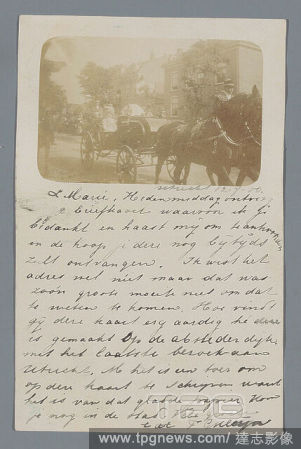 Utrecht
L. Marie, Hedenmiddag ontving
ik briefkaart waarvoor ik U
bedankt en haast mij om te antwoorden
in de hoop je deze nog bytyds
zult ontvangen. Ik wist het
adres wel niet maar dat was
zoon groote moeite niet om dat
te weten te komen. Hoe vindt
gy deze kaart erg aardig he deze
is gemaakt Op de abstederdyk
met het laatste bezoek aan
Utrecht. M het is een toer om
op deze kaart te schryven want
het is van dat gladde papier Hoor
je nog in de stad
www.tpgnews.com / 達志影像